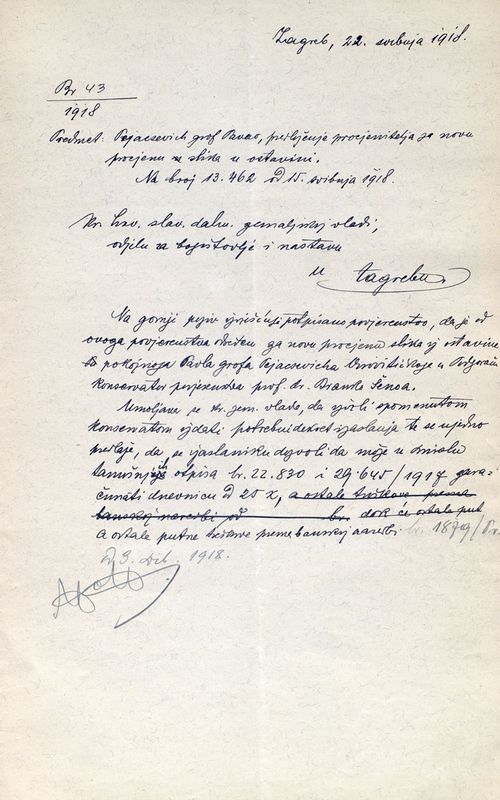 Zagreb, 22. svibnja 1918.
Br 43
1918
Predmet: Pejacsevich grof Pavao, predloženje procjenitelja za novu
procjenu za slika u ostavini.
Na broj 13.462 od 15. svibnja 1918.
Kr. hrv. slav. dalm. zemaljskoj vladi,
odjelu za bogoštovlje i nastavu
u Zagrebu
Na gornji poziv izvješćuje potpisano povjerenstvo, da je od
ovoga povjerenstva određen za novu procjenu slika iz ostavine
pokojnoga Pavla grofa Pejacsevicha Virovitičkoga u Podgoraču
konservator povjerenstva prof. dr. Branko Šenoa.
Umoljava se kr. zem. vlada, da izvoli spomenutom
konservatoru izdati potrebni dekret izaslanja te se ujedno
predlaže, da se izaslaniku dozvoli da može u smislu
tamošnjih otpisa br. 22.830 i 29.645/1917 zara-
čunati dnevnicu od 25 K, a ostale troškove prema
banskoj naredbi od br. dok će ostale put
a ostale putne troškove prema banskoj naredbi br. 1879/Pr.
3. 1918.